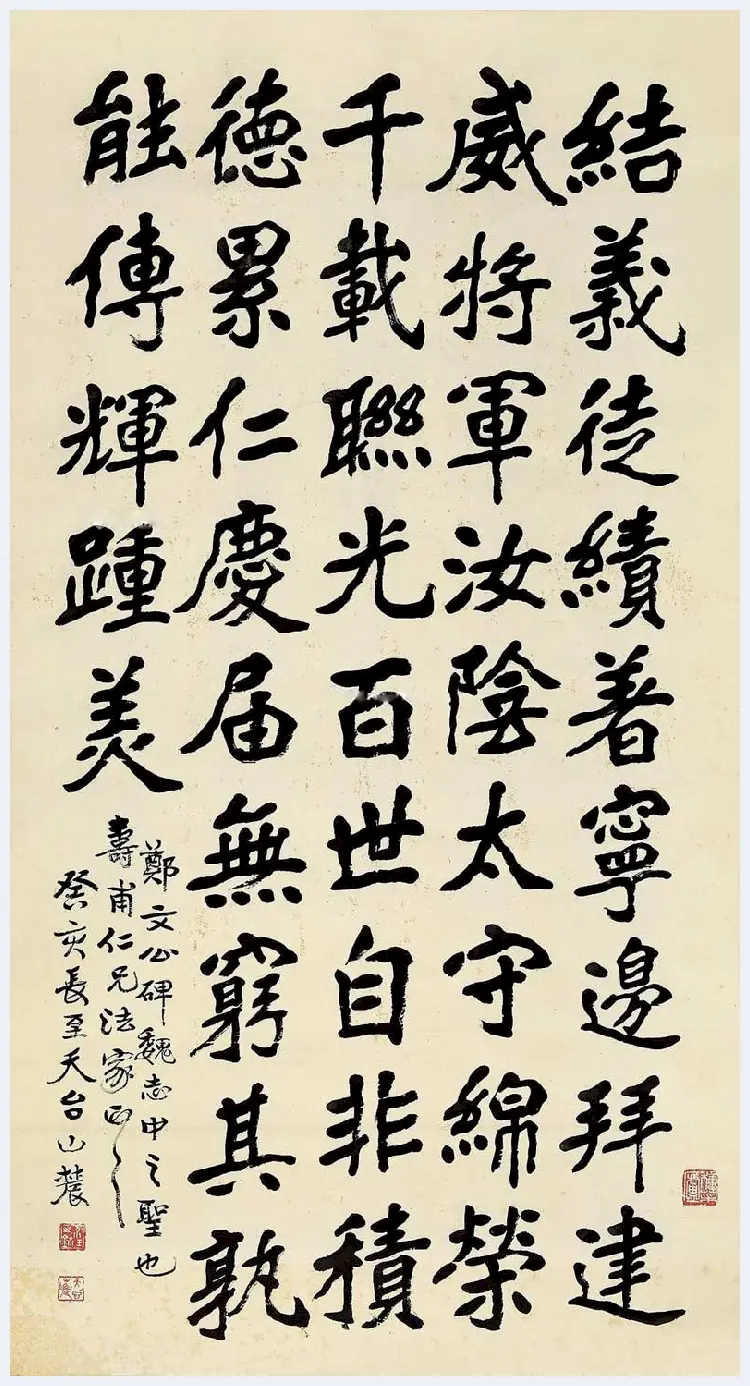 結義徒績著寧邊拜建
威將軍汝陰太守綿榮
千載聯光百世自非積
德累仁慶届無窮其孰
能傳輝踵美
鄭文公碑魏志中之聖也
壽甫仁兄法家正之
癸亥長至天台山農